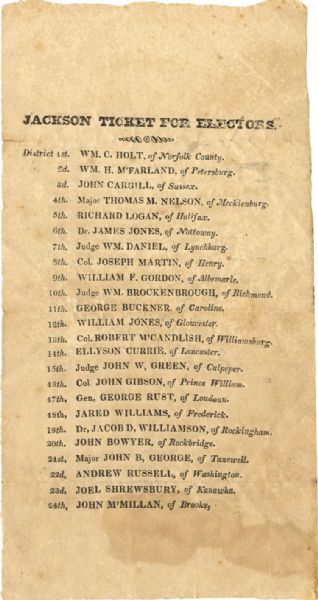 JACKSON TICKET FOR ELECTORS.
District 1st. WM. C. HOLT, of Norfolk County.
2d. WM. H. M'FARLAND, of Petersburg.
3d. JOHN CARGILL, of Sussex.
4th. Major THOMAS M. NELSON, of Mecklenburg.
5th. RICHARD LOGAN, of Halifax.
6th. Dr. JAMES JONES, of Nottoway.
7th. Judge WM. DANIEL, of Lynchburg.
8th. Col. JOSEPH MARTIN, of Henry.
9th. WILLIAM F. GORDON, of Albemarle.
10th. Judge WM. BROCKENBROUGH, of Richmond.
11th. GEORGE BUCKNER, of Caroline.
12th. WILLIAM JONES, of Gloucester.
13th. Col. ROBERT M'CANDLISH, of Williamsburg.
14th. ELLYSON CURRIE, of Lancaster.
15th. Judge JOHN W, GREEN, of Culpeper.
16th. Col. JOHN GIBSON, of Prince William.
17th. Gen, GEORGE RUST, of Loudoun.
18th, JARED WILLIAMS, of Frederick.
19th. Dr, JACOB D, WILLIAMSON, of Rockingham.
20th. JOHN BOWYER, of Rockbridge.
21st, Major JOHN B, GEORGE, of Tazewell.
22d, ANDREW RUSSELL, of Washington.
23d, JOEL SHREWSBURY, of Kanawka.
24th, JOHN M'MILLAN, of Brooke,